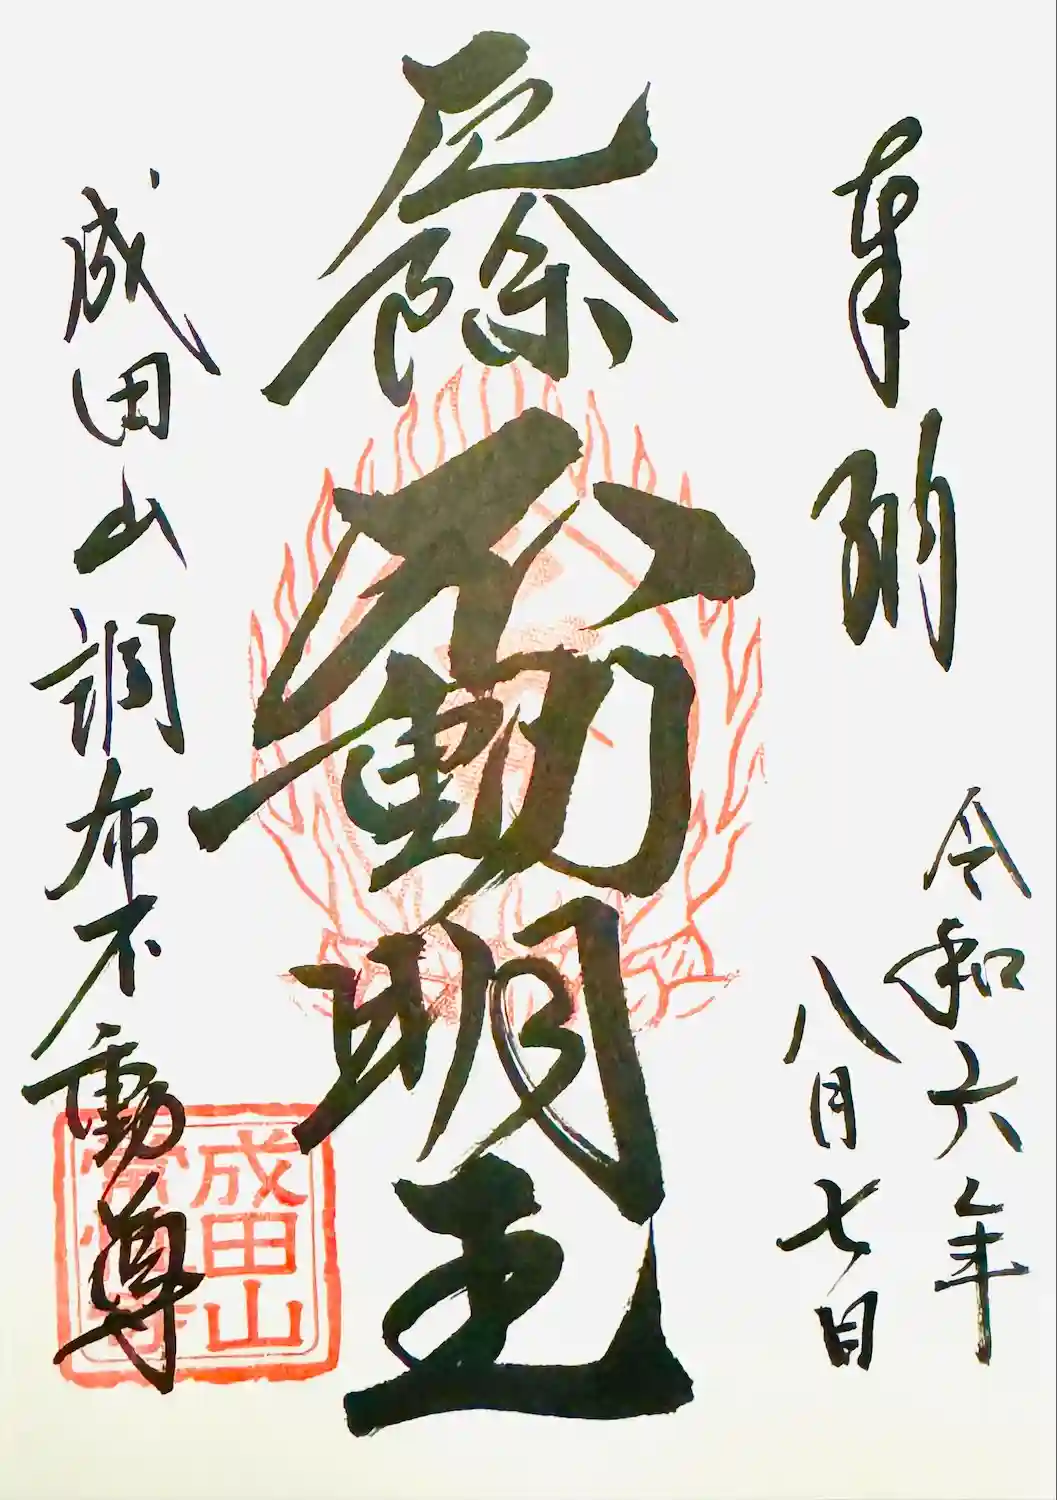 奉納
令和六年
八月七日
厄除
不動明王
成田山調布不動尊
成田山
常性寺